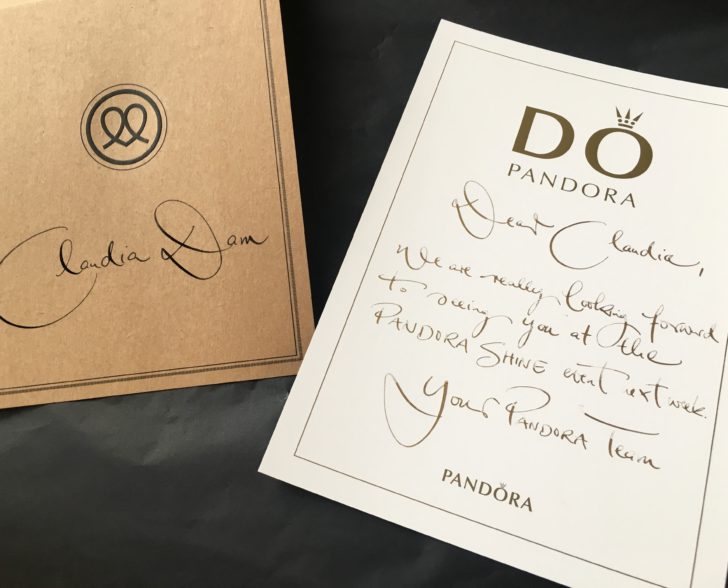 Claudia Dam
DO
PANDORA
Dear Claudia,
We are really looking forward
to seeing you at the
PANDORA SHINE event next week.
Your PANDORA Team
PANDORA